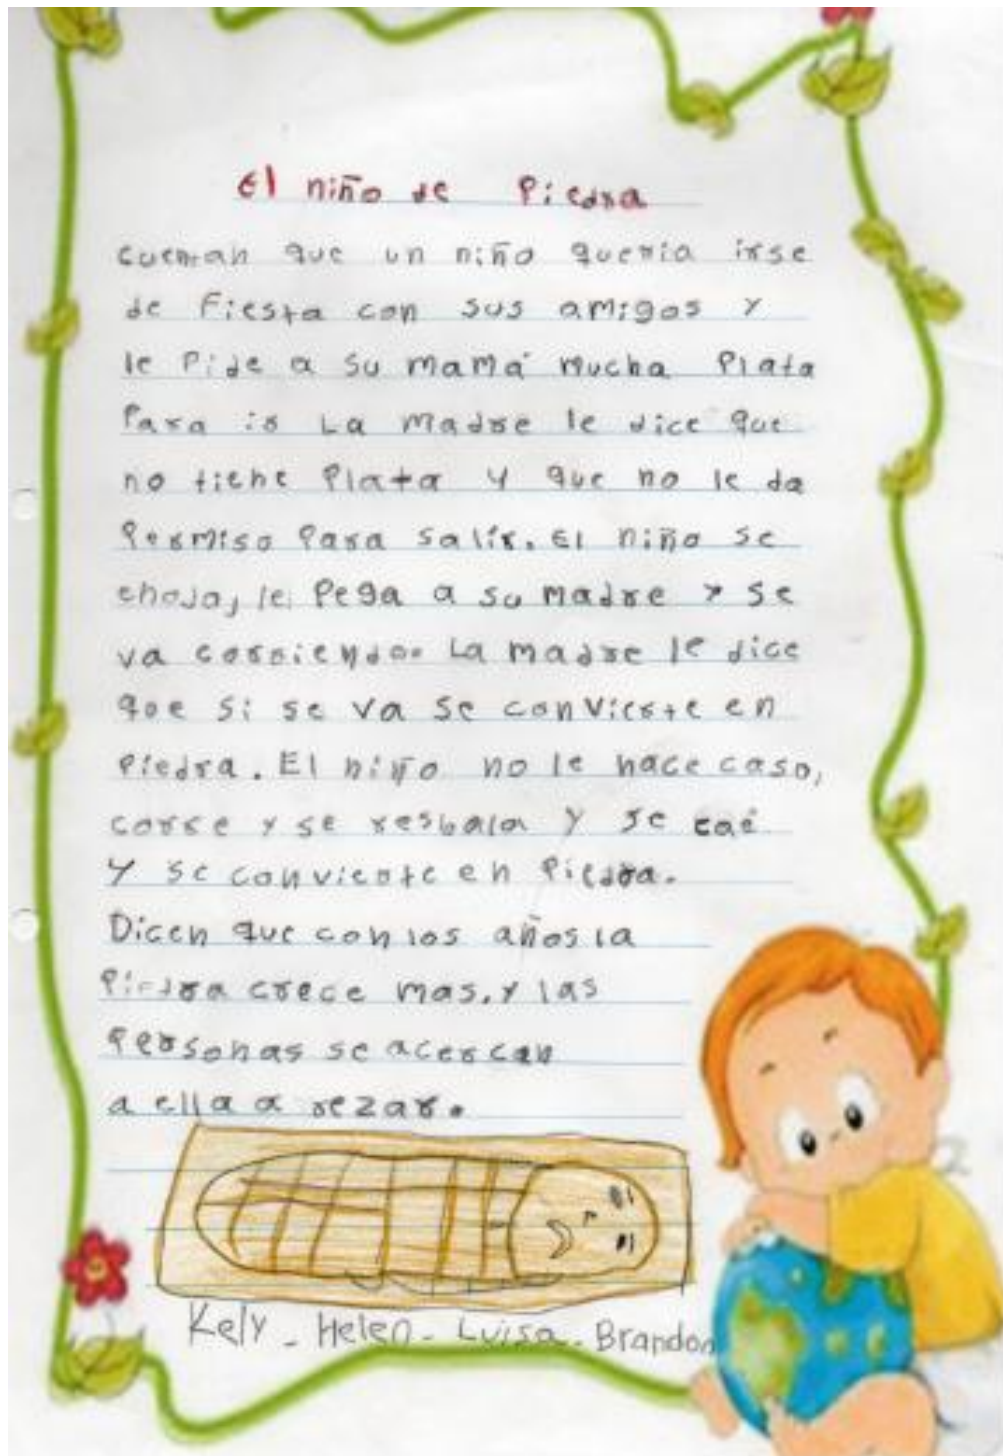 El niño de Piedra
cuentan que un niño queria irse
de Fiesta con sus amigos y
le Pide a su mamá mucha Plata
Para ir La madre le dice que
no tiene Plata y que no le da
Permiso Para salir. El niño se
enoja, le Pega a su madre y se
va corriendo. La madre le dice
que si se va se convierte en
Piedra. El niño no le hace caso,
corre y se resbala y se cae
Y se convierte en Piedra.
Dicen que con los años la
Piedra crece mas. y las
Personas se acercan
a ella a rezar.
Kely - Helen - Luisa - Brandon